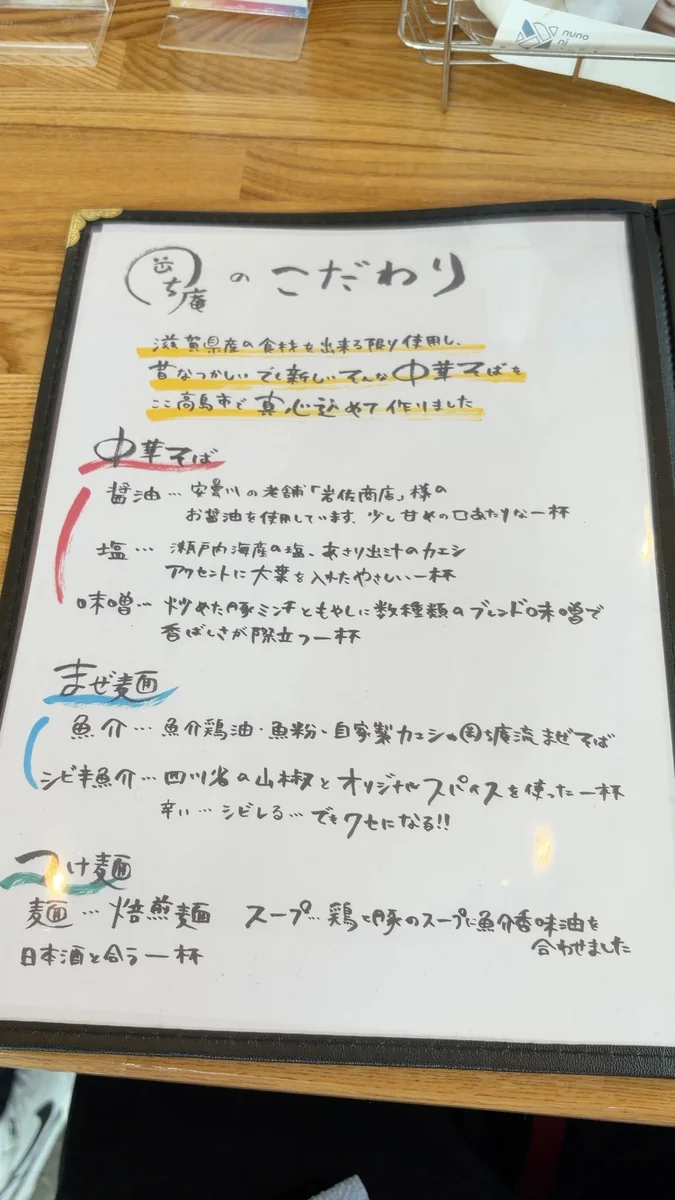 nuno
ni
ち庵 の こだわり
滋賀県産の食材を出来る限り使用し、
昔なつかしい でも新しいそんな中華そばを
ここ高島市で真心込めて作りました
中華そば
醤油…安曇川の老舗「岩佐商店」様の
お醤油を使用しています。少し甘めの口あたりな一杯
塩…瀬戸内海産の塩、あさり出汁のカエシ
アクセントに大葉を入れたやさしい一杯
味噌…炒めた豚ミンチともやしに数種類のブレンド味噌で
香ばしさが際立つ一杯
まぜ麺
魚介…魚介鶏油・魚粉・自家製カエシの ち庵流まぜそば
シビ辛魚介…四川省の山椒とオリジナルスパイスを使った一杯
辛い…シビレる…でもクセになる!!
つけ麺
麺…焙煎麺 スープ…鶏と豚のスープに魚介香味油を
合わせました
日本酒と合う一杯